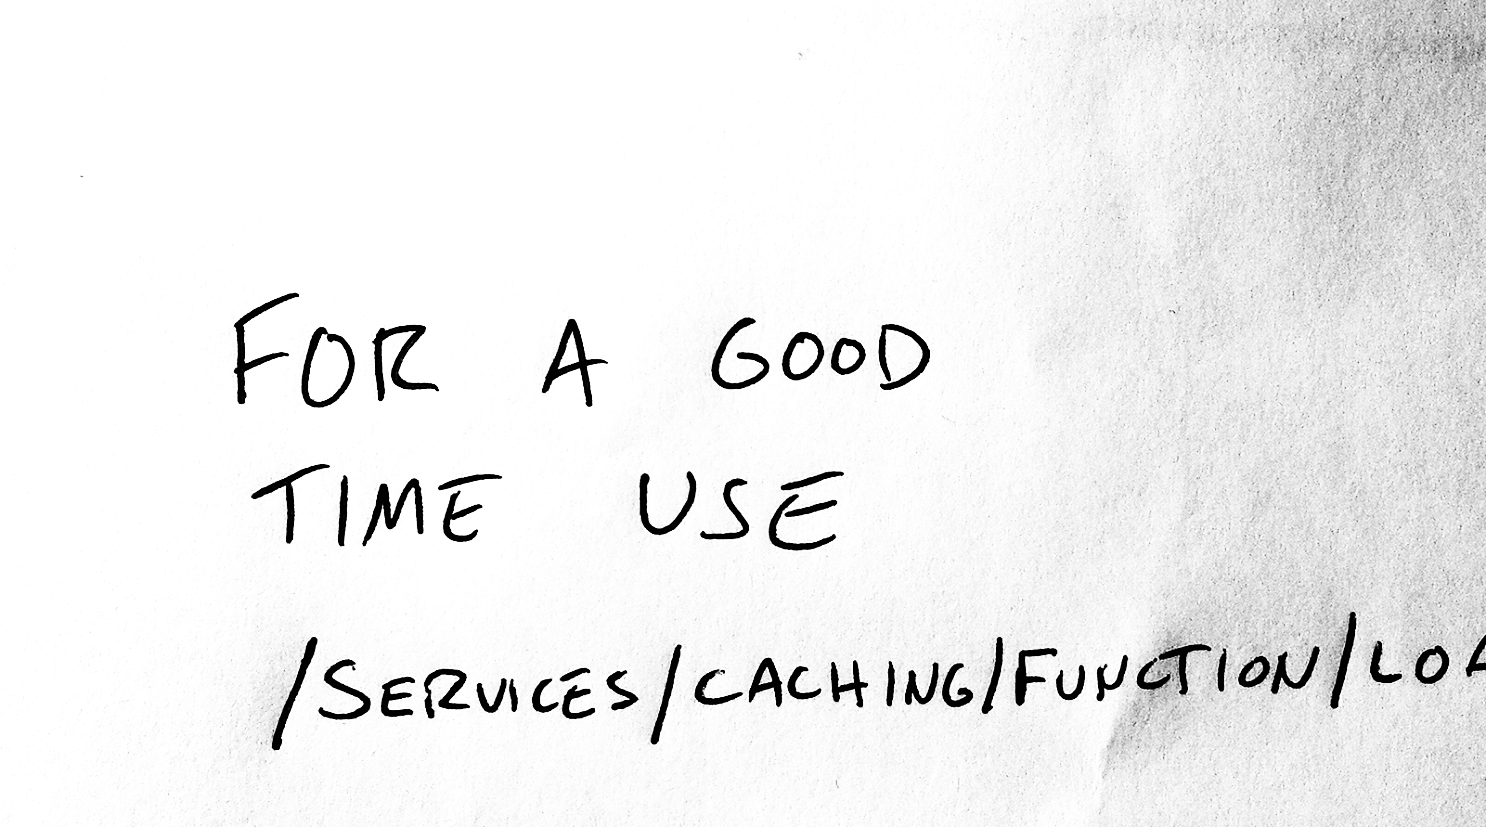 FOR A GOOD
TIME USE
/SERVICES/CACHING/FUNCTION/LOA